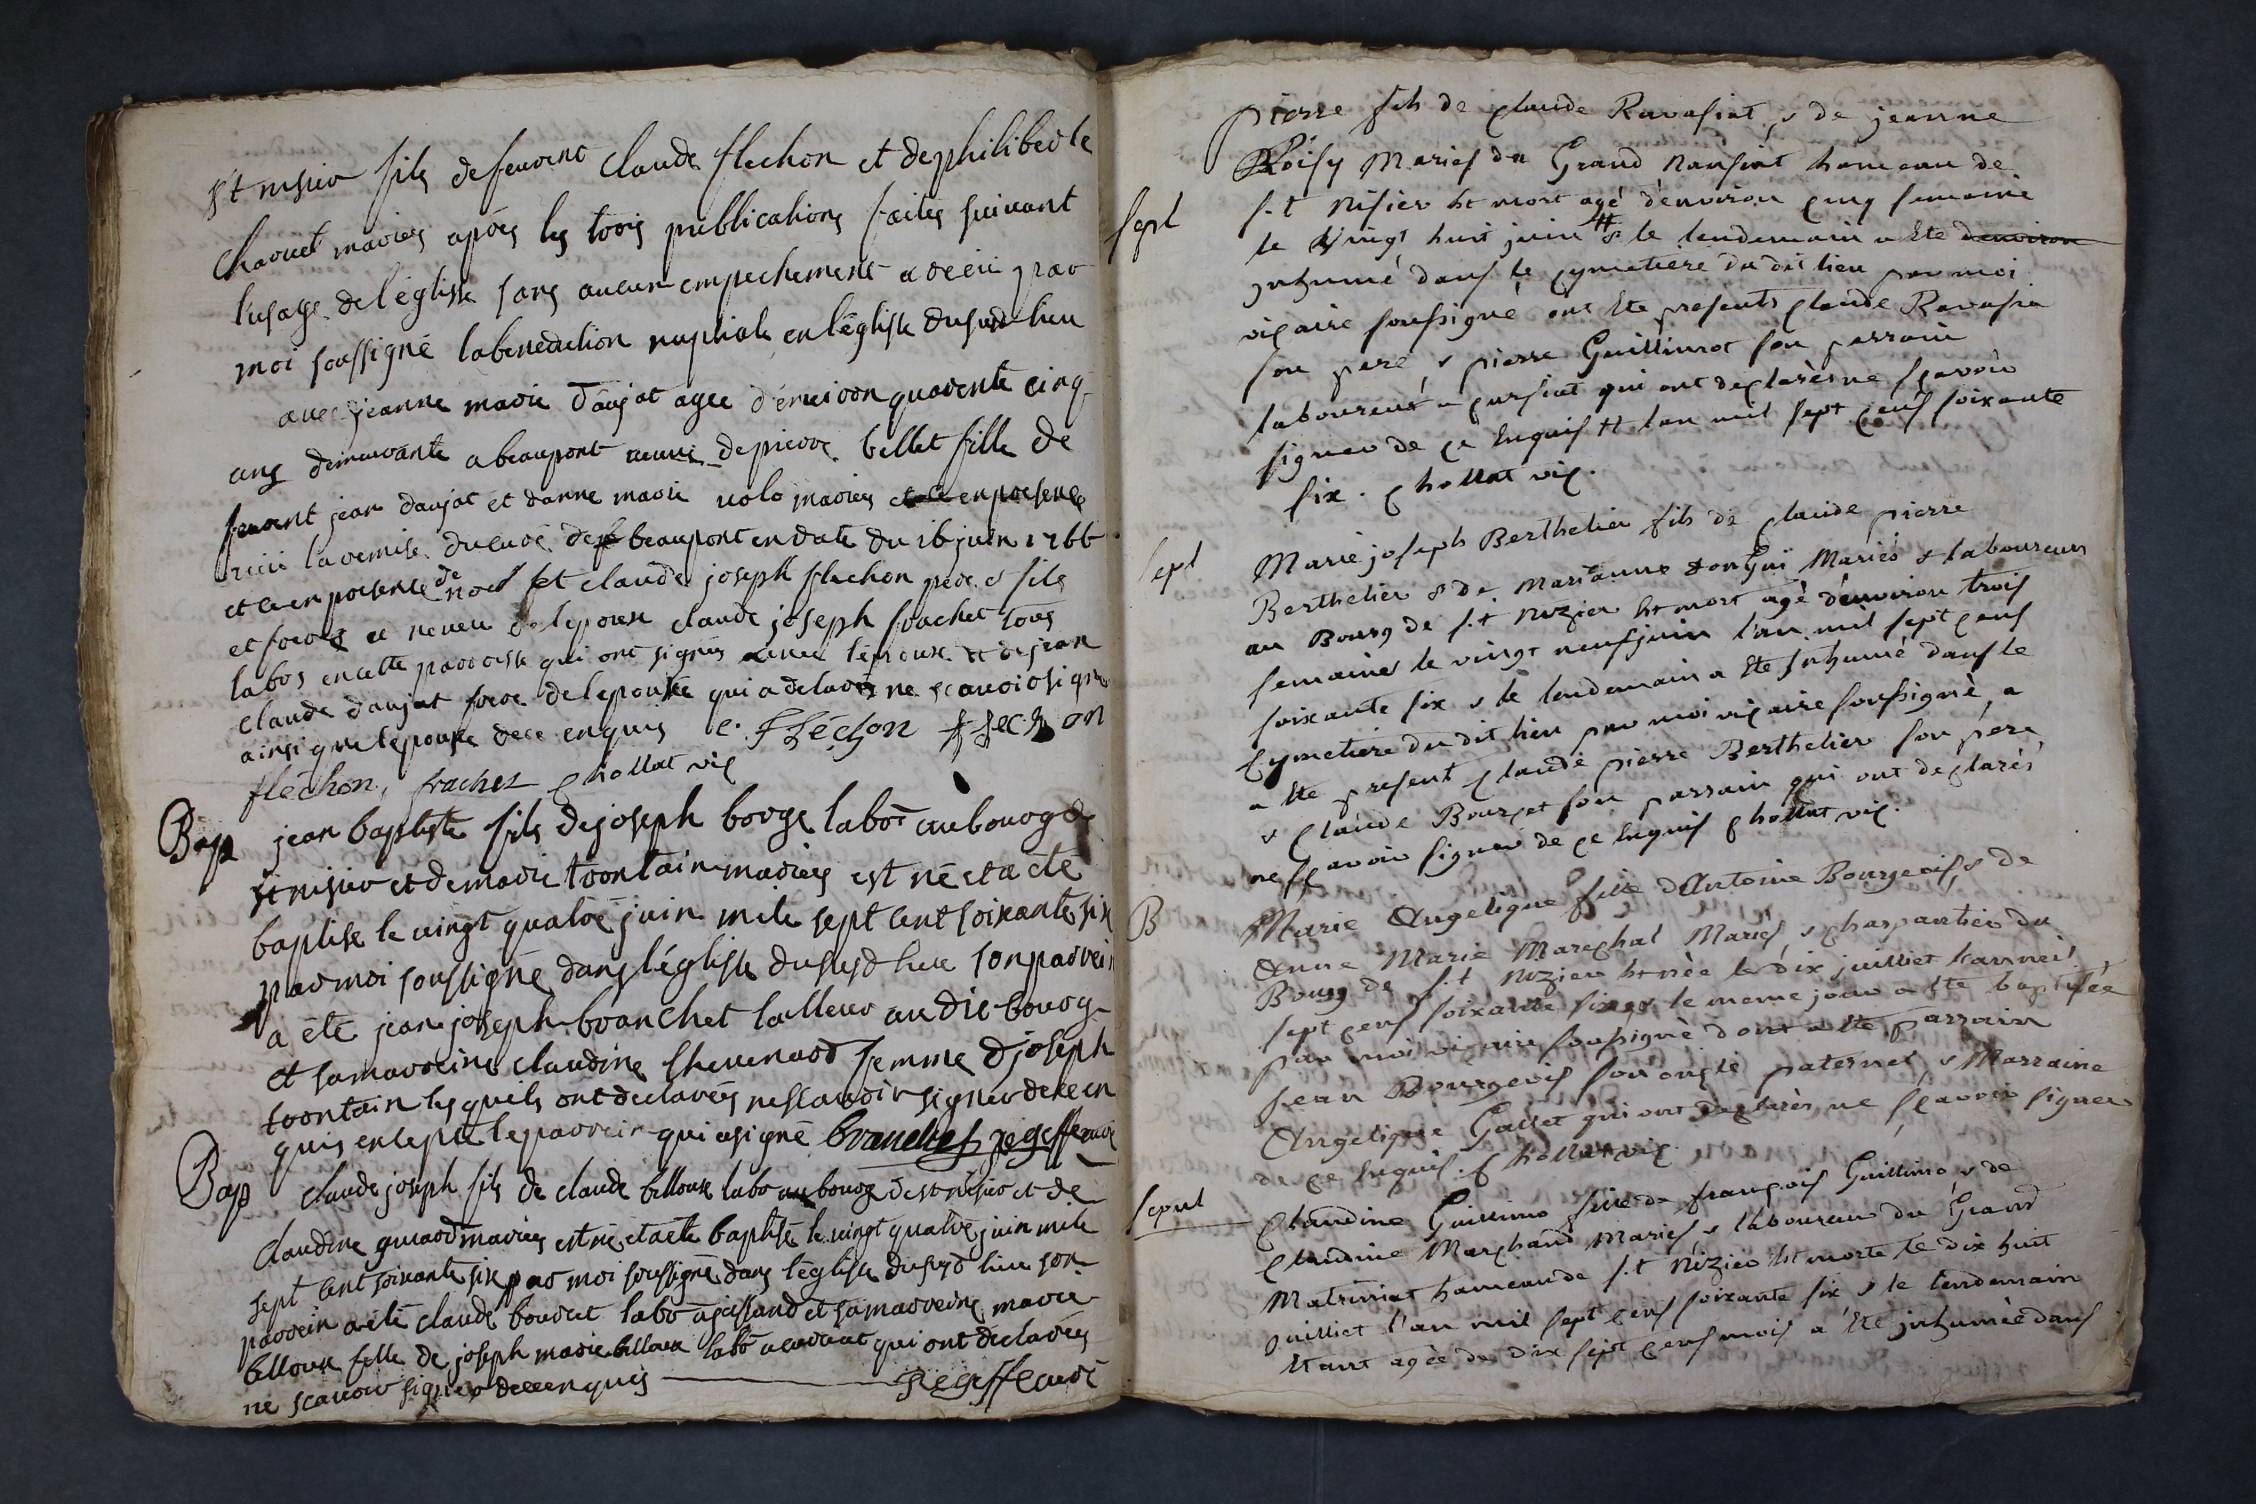 st nisier fils de feuvent claude flechon et de philiberte
chavuet mariez apres les trois publications faites suivant
l'usage de l'église sans aucun empechement a receu par
moi soussigné la benediction nuptiale en l'église du susd lieu
avec jeanne marie daujat agee d'environ quarente cinq
ans demeurante a beaupont veuve de pierre bellet fille de
feuvent jean daujat et danne marie volo mariez et ce en presence
veüe la remise du curé de beaupont en date du 16 juin 1766
et ce en presence de noel et claude joseph flechon pere et fils
et frere et neveu de lepoux claude joseph frachet tous
labos en cette parroisse qui ont signés avec l'epoux et de jean
claude daujat frere de lepouse qui a declaré ne scavoir signer
ainsi que lepouse de ce enquis c. flechon flechon
flechon, frachet chollat vic
Bap jean baptiste fils de joseph borge labor au bourg de
st nisier et de marie trontain mariez est né et a été
baptisé le vingt quatre juin mile sept cent soixante six
par moi soussigné dans l'église du susd lieu son parrein
a été jean joseph branchet tailleur au dit bourg
et sa marreine claudine chevenard femme d joseph
trontain lesquels ont declarés ne scavoir signer de ce en
quis excepté le parrein qui a signé branchet
Bap claude joseph fils de claude bellouse labo au bourg de st nisier et de
claudine guiard mariez est né et a été baptisé le vingt quatre juin mile
sept cent soixante six par moi soussigné dans l'église du susd lieu son
parrein a été claude bouvet labo a jassand et sa marreine marie
bellouse fille de joseph marie bellouse labo a qui ont declarés
ne scavoir signer de ce enquis
pierre fils de claude Ravasiat, & de jeanne
Loisy Mariés du Grand Nansiat hameau de
sept s.t Nisier est mort agé d'environ cinq semaine
le vingt huit juin # & le lendemain a été denviron
inhumé dans le cymetiere du dit lieu par moi
vicaire soussigné ont été presents claude Ravasia
son pere, & pierre Guillimot son parrain
laboureurs a cursiat qui ont declarés ne sçavoir
signer de ce Enquis # lan mil sept cens soixante
six. chollat vic.
sept Marie joseph Berthelier fils de claude pierre
Berthelier & de Marianne donGui Mariés & laboureurs
au Bourg de s.t Nizier est mort agé d'environ trois
semaines le vingt neuf juin l'an mil sept cens
soixante six & le lendemain a été Inhumé dans le
Cymetiere du dit lieu par moi vicaire soussigné, a
a été present claude pierre Berthelier son pere
& claude Bourcet son parrain qui ont declarés
ne sçavoir signer de ce Enquis chollat vic.
B Marie Angelique fille d'Antoine Bourgeois, & de
Anne Marie Marechal Mariés, & charpantier du
Bourg de s.t Nizier est née le dix juilliet l'an mil
sept cens soixante six & le meme jour a été baptisée
par moi vicaire soussigné dont a été parrain
jean Bourgeois son oncle paternel, & Marraine
Angelique Gallet qui ont declarés ne sçavoir signer
de ce Enquis. chollat vic.
sepul Claudine Guillimo fille de françois Guillimo & de
Claudine Marchand Mariés & laboureur du Grand
Matriniat hameau de s.t Nizier est morte le dix huit
juilliet l'an mil sept cens soixante six & le lendemain
Etant agée de dix sept cens mois a été inhumée dans